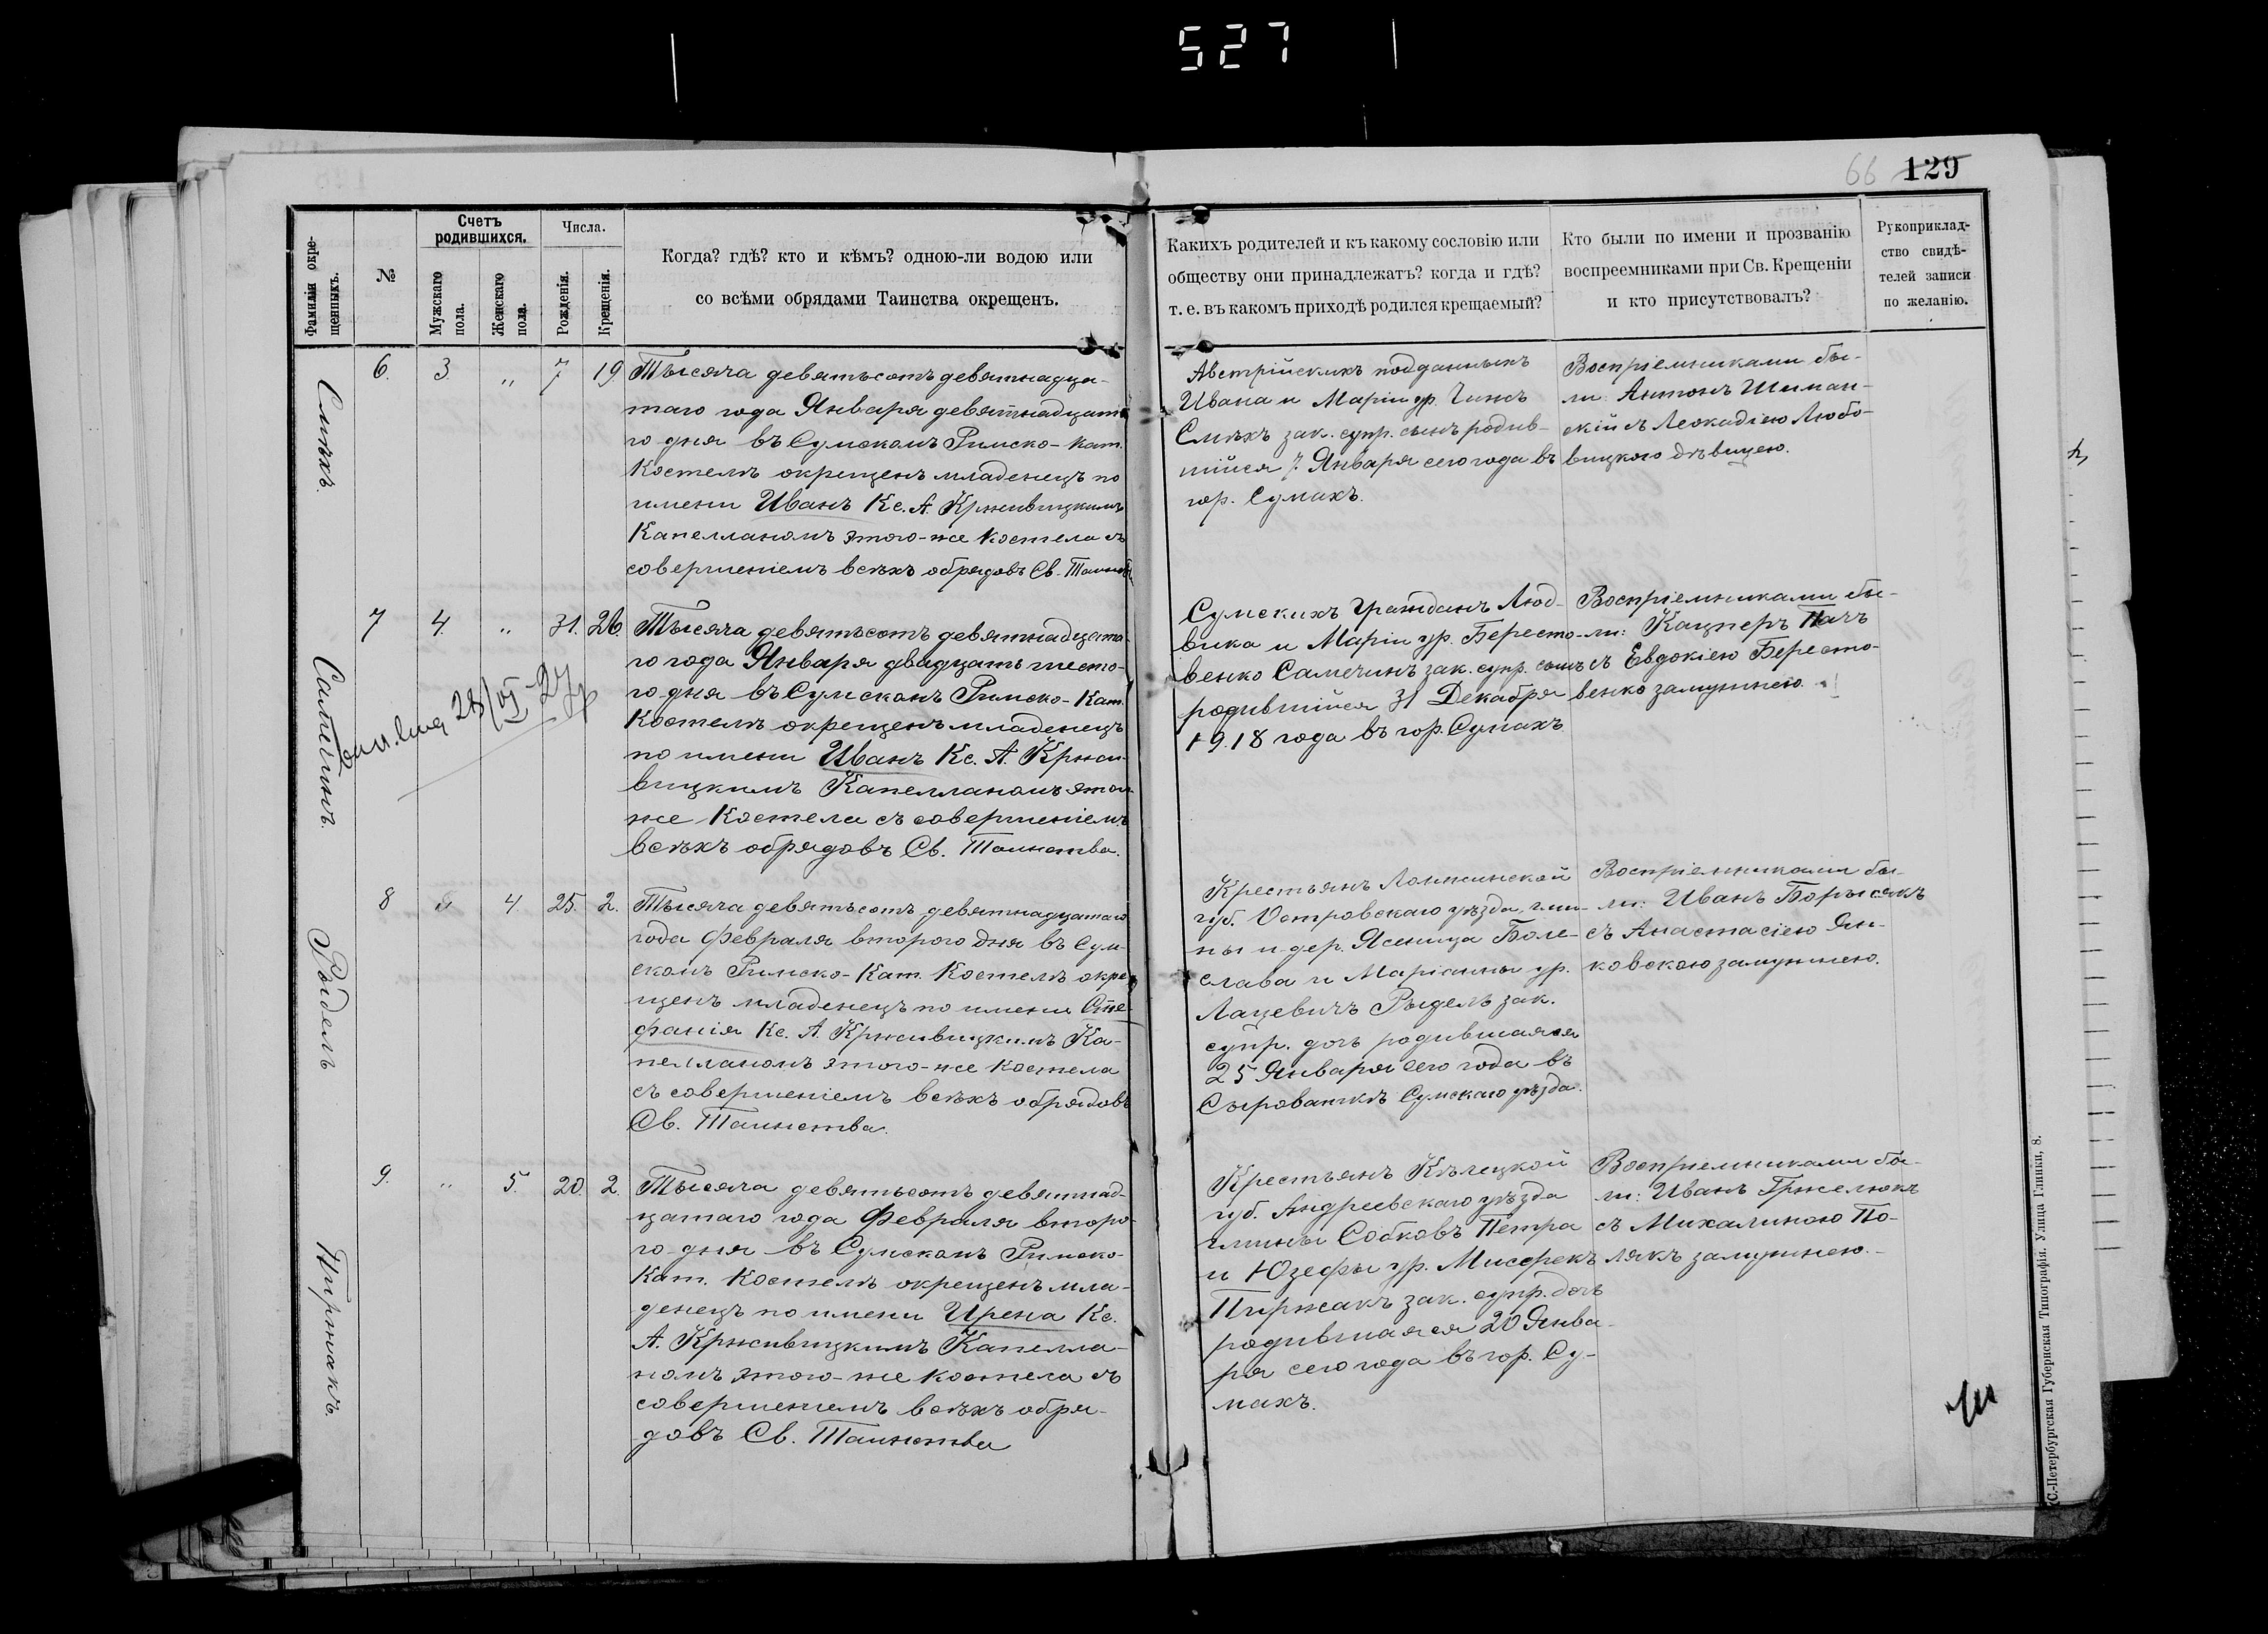 527
66 129
Фамиліи окре-
щенныхъ.
№
Счетъ
родившихся.
Мужскаго
пола.
Женскаго
пола.
Числа.
Рожденія.
Крещенія.
Когда? гдѣ? кто и кѣмъ? одною-ли водою или
со всѣми обрядами Таинства окрещенъ.
Какихъ родителей и къ какому сословію или
обществу они принадлежатъ? когда и гдѣ?
т. е. въ какомъ приходѣ родился крещаемый?
Кто были по имени и прозванію
воспреемниками при Св. Крещеніи
и кто присутствовалъ?
Рукоприклад-
ство свидѣ-
телей записи
по желанію.
Смѣхъ.
6. 3. „ 7 19
Тысяча девятьсотъ девятнадца-
таго года Января девятнадцата
го дня въ Сумскомъ Римско-Кат.
Костелѣ окрещенъ младенецъ по
имени Иванъ Кс. А. Крживицкимъ
Капелланомъ этого-же Костела съ
совершеніемъ всѣхъ обрядовъ Св. Таинств
Австрійскихъ подданныхъ
Ивана и Маріи ур.
Смѣхъ зак. супр. сынъ родив-
шійся 7. Января сего года въ
гор. Сумахъ.
Воспріемниками бы-
ли: Антонъ Шиман-
скій съ Леокадіею Любо-
вицкою дѣвицею.
Самечинъ.
7 4. „ 31. 26.
28/VI-27
Тысяча девятьсотъ девятнадцата-
го года Января двадцать шесто-
го дня въ Сумскомъ Римско-Кат.
Костелѣ окрещенъ младенецъ
по имени Иванъ Кс. А. Кржи-
вицкимъ Капелланомъ этого-
же Костела съ совершеніемъ
всѣхъ обрядовъ Св. Таинства.
Сумскихъ Гражданъ Люд-
вика и Маріи ур. Бересто-
венко Самечинъ зак. супр. сынъ
родившійся 31 Декабря
1918 года въ гор. Сумахъ
Воспріемниками бы-
ли: Кацперъ Пачъ
съ Евдокіею Бересто-
венко замужнею.
Рыдель
8 „ 4. 25. 2.
Тысяча девятьсотъ девятнадцатаго
года Февраля второго дня въ Сум-
скомъ Римско-Кат. Костелѣ окре
щенъ младенецъ по имени Сте-
фанія Кс. А. Крживицкимъ Ка-
пелланомъ этого-же Костела
съ совершеніемъ всѣхъ обрядовъ
Св. Таинства.
Крестьянъ Ломжинской
губ. Островскаго уѣзда, гми-
ны и дер. Ясеница Боле-
слава и Маріанны ур.
Лацевичъ Рыдель зак.
супр. дочь родившаяся
25 Января сего года въ
Сыроваткѣ Сумскаго уѣзда.
Воспріемниками бы-
ли: Иванъ Борысякъ
съ Анастасіею Ян-
ковскою замужнею.
Пиржакъ.
9. „ 5. 20. 2.
Тысяча девятьсотъ девятнад-
цатаго года Февраля второ-
го дня въ Сумскомъ Римско-
Кат. Костелѣ окрещенъ мла-
денецъ по имени Ирена Кс.
А. Крживицкимъ Капелла-
номъ этого-же костела съ
совершеніемъ всѣхъ обря-
довъ Св. Таинства
Крестьянъ Кѣлецкой
губ. Андреевскаго уѣзда
гмины Собковъ Петра
и Юзефы ур. Мисерекъ
Пиржакъ зак. супр. дочь
родившаяся 20 Янва-
ря сего года въ гор. Су-
махъ.
Воспріемниками бы-
ли: Иванъ Гржелюкъ
съ Михалиною По-
лякъ замужнею.
С.-Петербургская Губернская Типографія. Улица Глинки, 8.